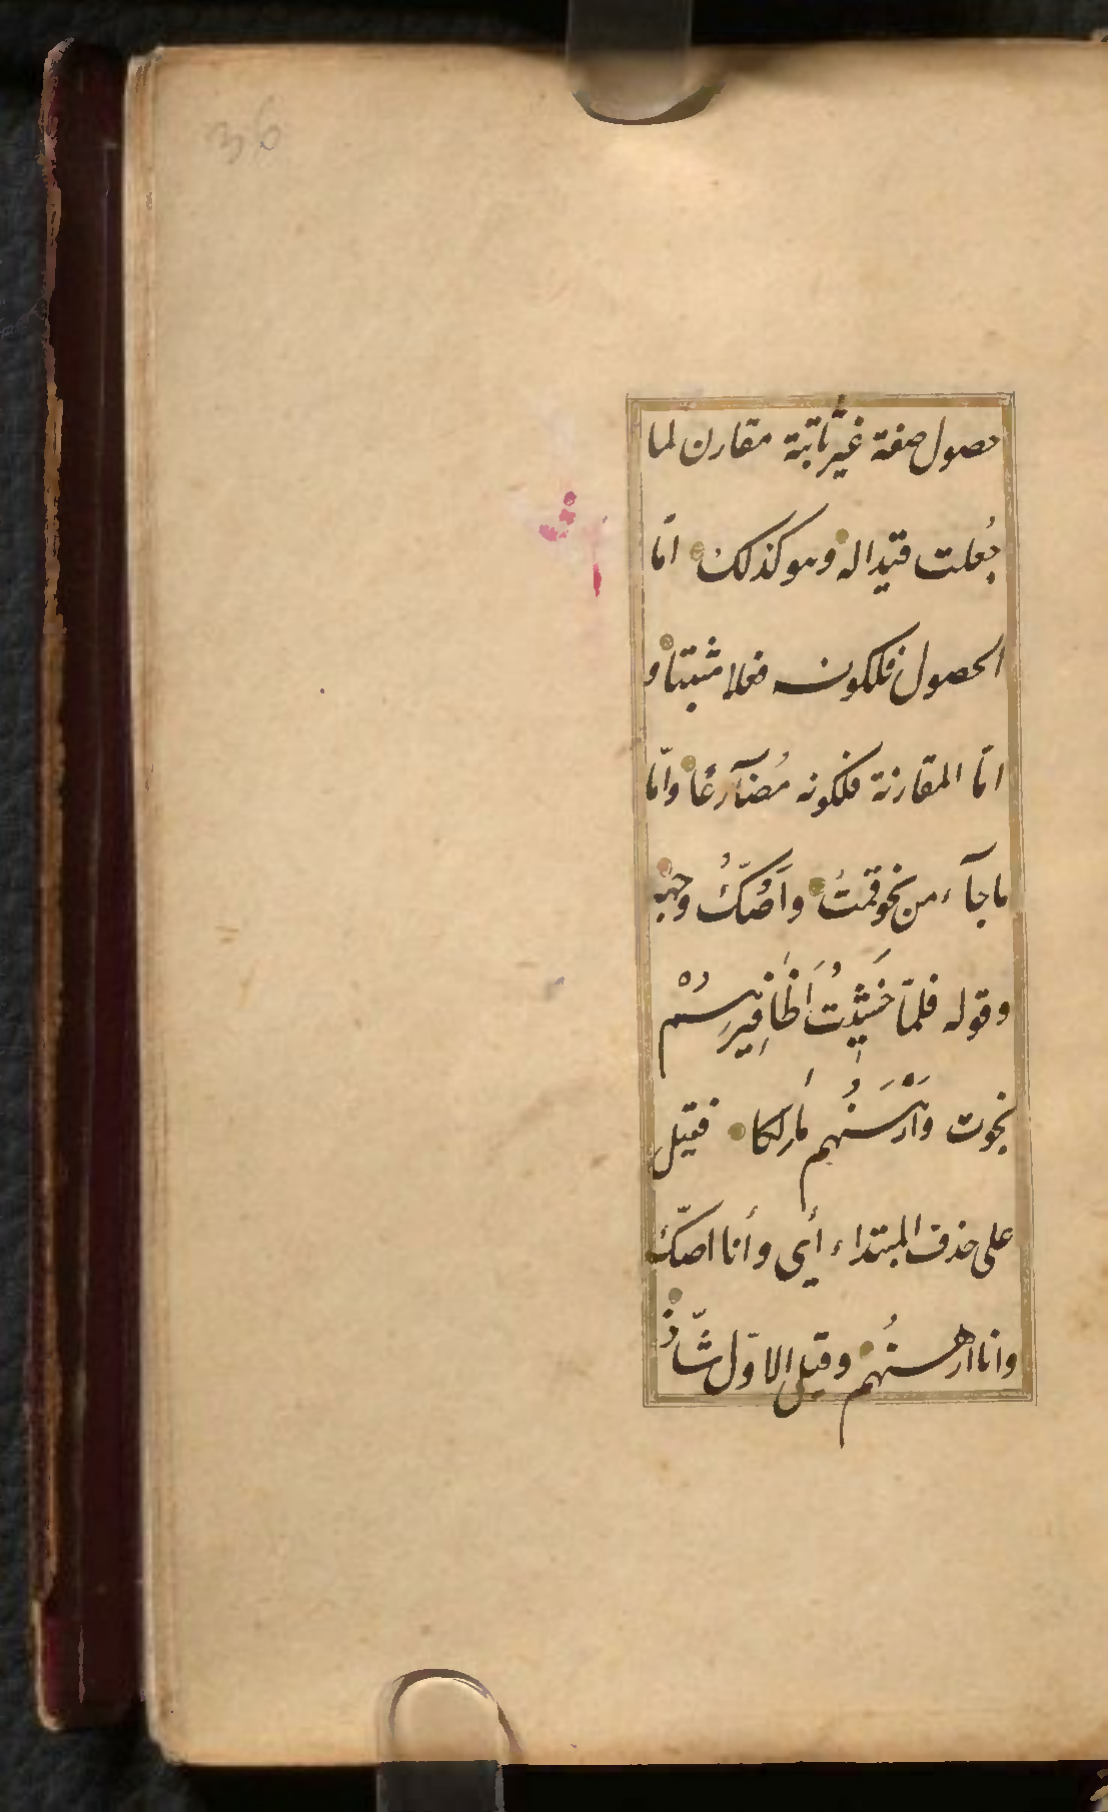 36
حصول صفة غير ثابتة مقارن لما
جُعلت قيدا له وهو كذلك امّا
الحصول فلكون فعلا مثبتا و
امّا المقارنة فلكونه مُضآرعًا وامّا
ما جآء من نحو قمتُ وأصُكُّ وجهه
وقوله فلمّا خَشِيتُ أَظَافِيرهُمْ
نجوت وأَرْهَنُهم مالكا فقيل
على حذف المبتداء أي وأنا اصكّ
وانا ارهنُهم وقيل الاوّل شّاذ